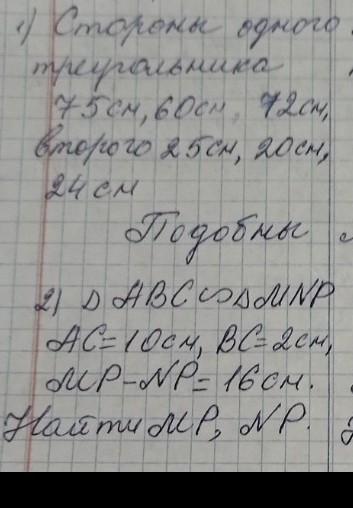 1) Стороны одного
треугольника
75см, 60см, 72см,
второго 25см, 20см,
24см
Подобны
2) Δ ABC ∽ Δ MNP
AC=10см, BC=2см,
MP-NP=16см.
Найти MP, NP.